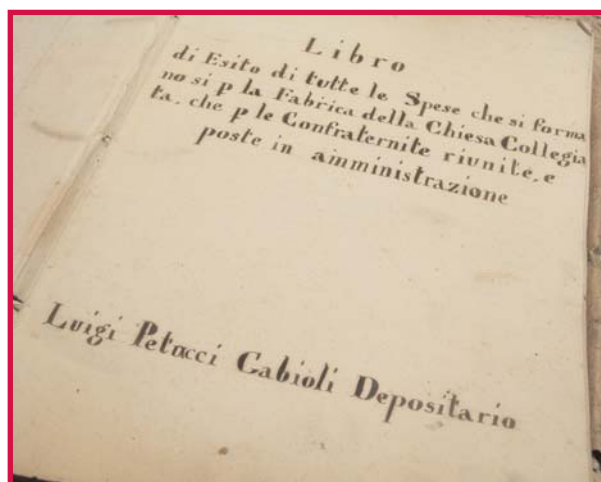 Libro
di Esito di tutte le Spese che si forma
no si p la Fabrica della Chiesa Collegia
ta, che p le Confraternite riunite, e
poste in amministrazione
Luigi Petacci Gabioli Depositario